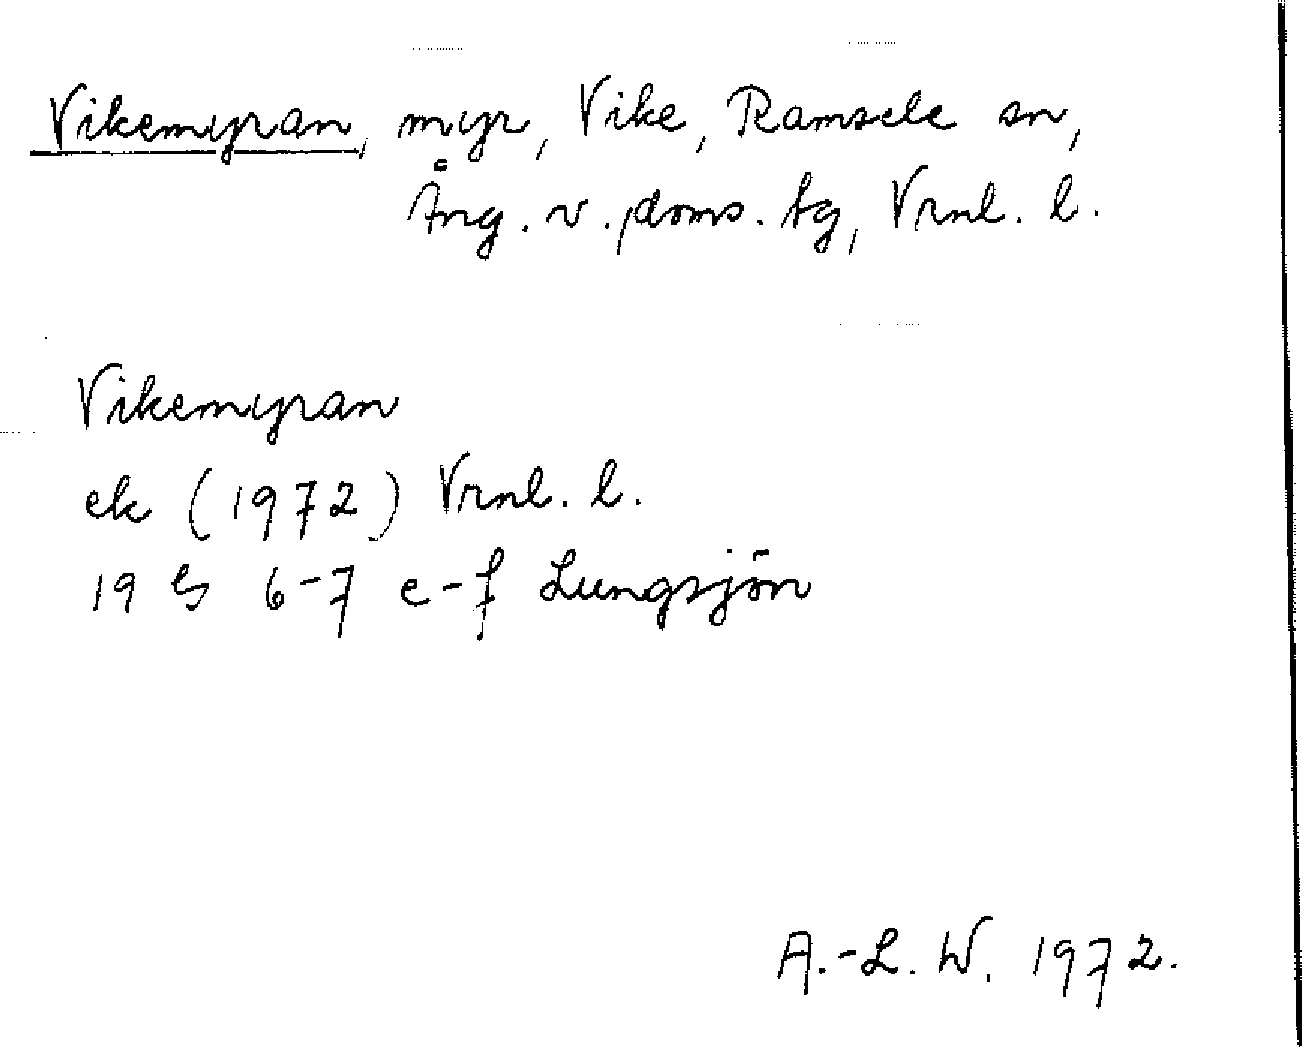 Vikemyran, myr, Vike, Ramsele sn,
Ång. v. doms. tg, Vrnl. l.
Vikemyran
ek (1972) Vrnl. l.
19 G 6-7 e-f Lungsjön
A.-L. W. 1972.